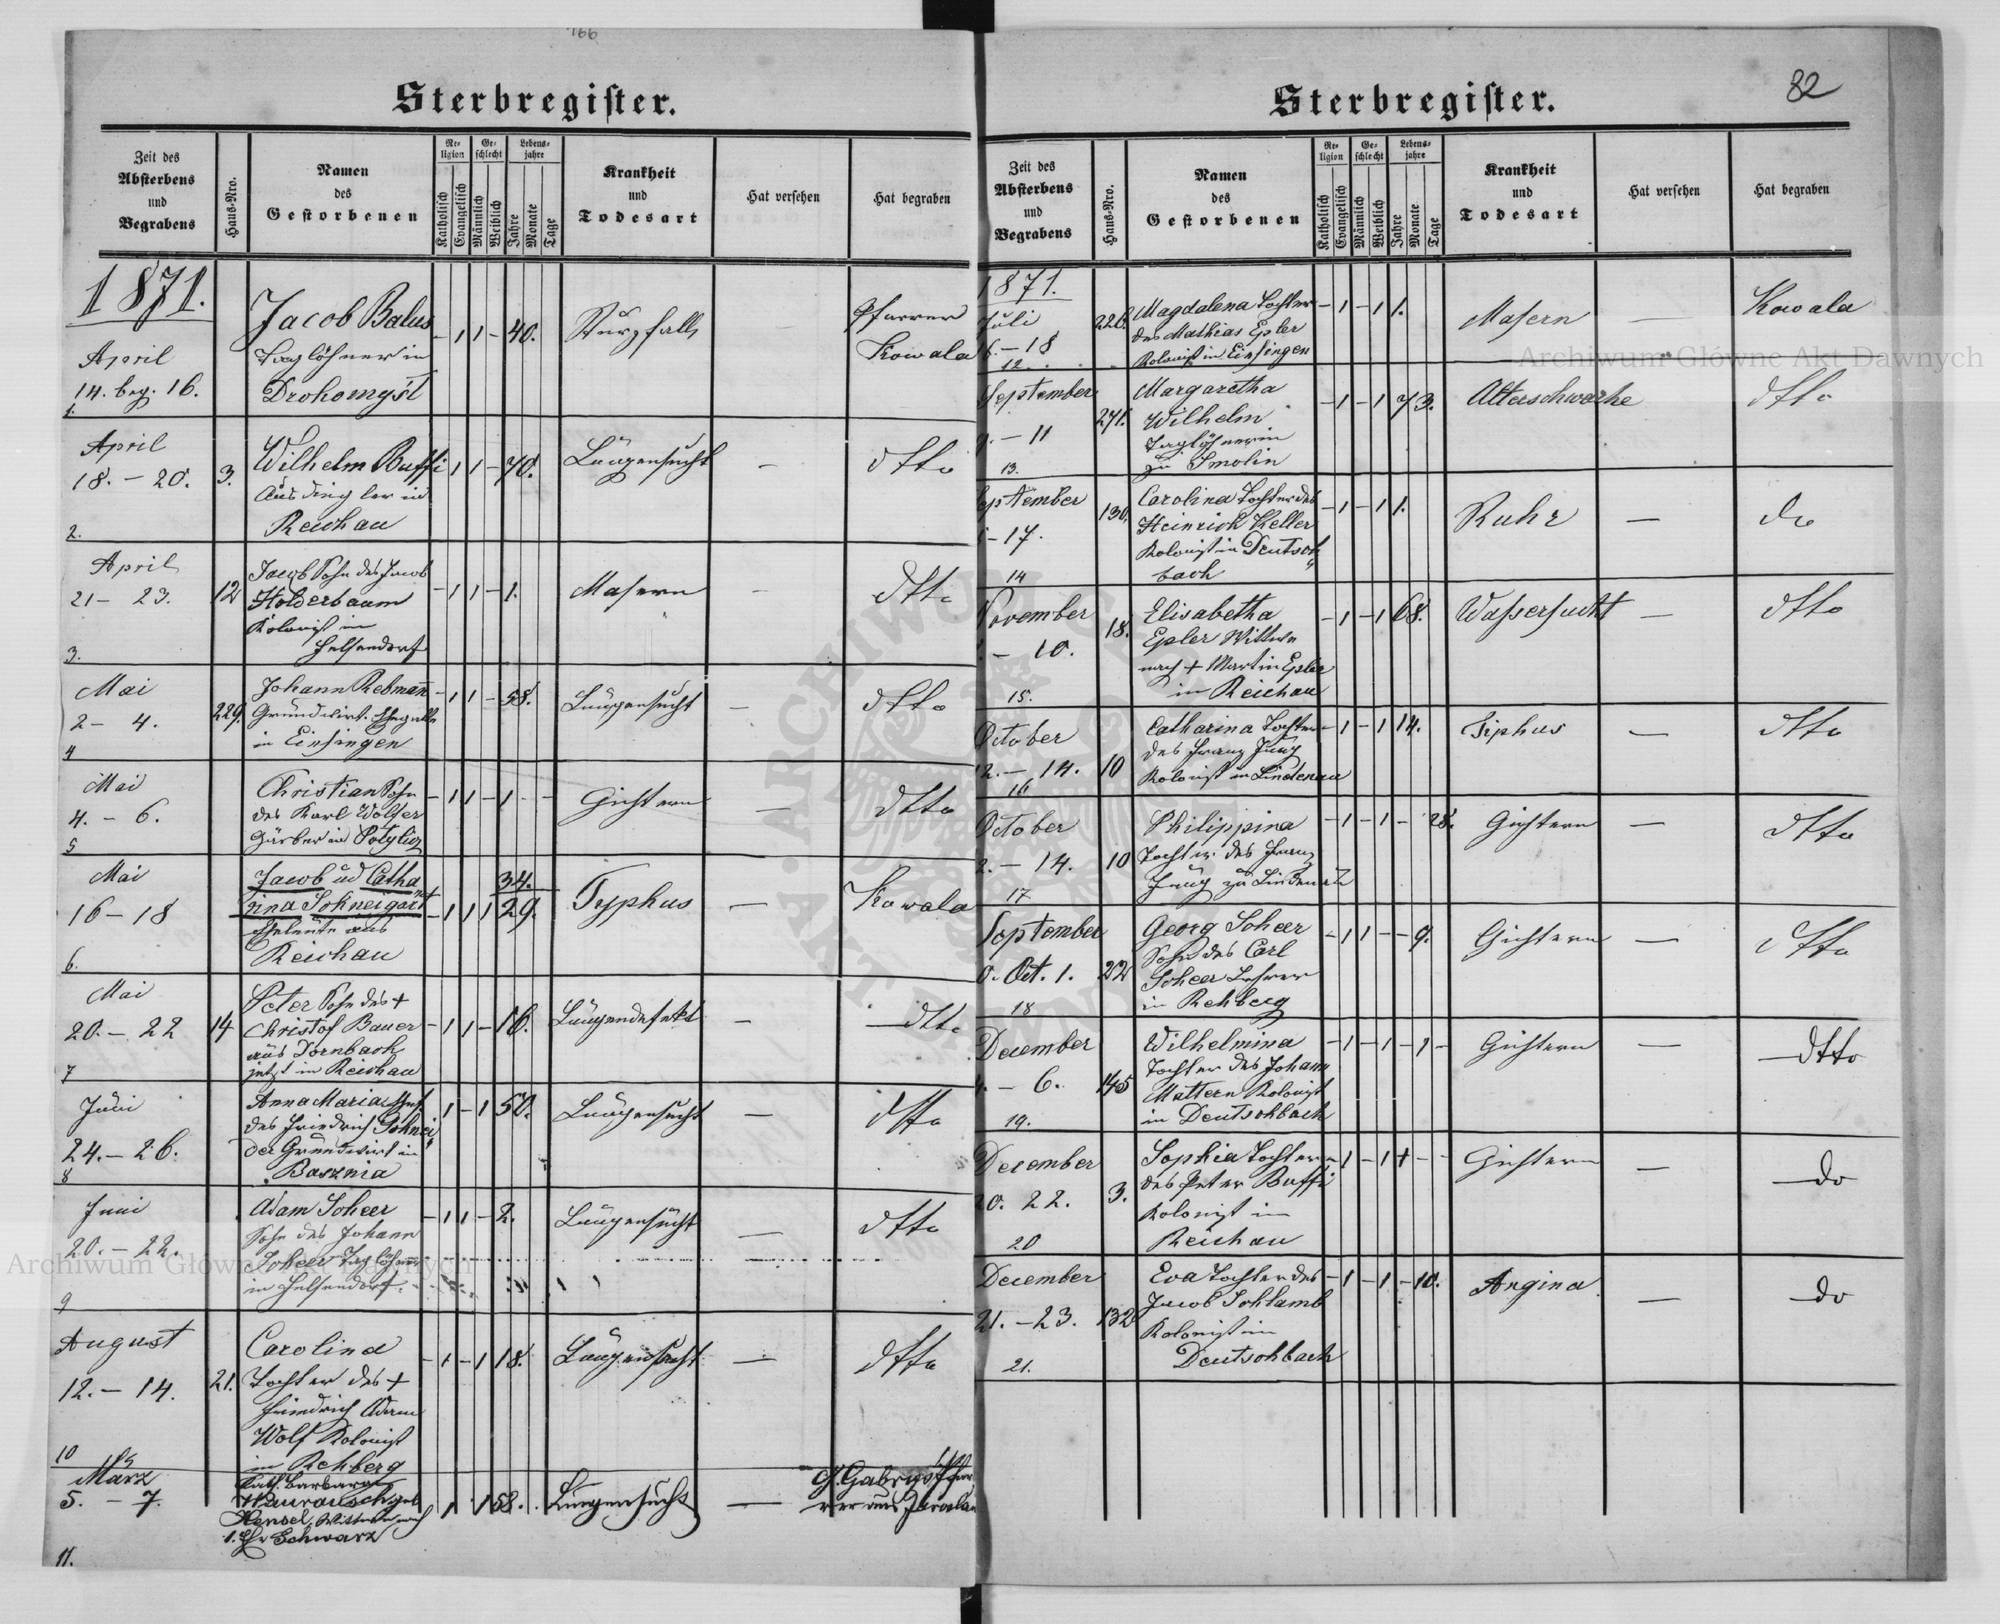 166
Sterbregister.
Zeit des Absterbens und Begrabens
Haus-Nro.
Namen des Gestorbenen
Religion
Katholisch
Evangelisch
Geschlecht
Männlich
Weiblich
Lebensjahre
Jahre
Monate
Tage
Krankheit und Todesart
Hat versehen
Hat begraben
1871.
April
14. beg. 16.
1.
Jacob Balus
Taglöhner in
Drohomyśl
- 1 1 - 40.
Sturzfall
Pfarrer
Kowala
April
18. - 20.
2.
3.
Wilhelm Buffi
Ausdingler in
Reichau
1 1 - 70.
Lungensucht
-
dtto
April
21 - 23.
3.
12
Jacob Sohn des Jacob
Holderbaum
Kolonist in
Felsendorf
- 1 1 - 1.
Masern
-
dtto
Mai
2 - 4.
4
229.
Johann Rebmann
Grundwirt. Ehegatte
in Einsingen
- 1 1 - 58.
Lungensucht
-
dtto
Mai
4. - 6.
5
Christian Sohn
des Karl Wolfer
Gärber in Potylicz
- 1 1 - 1 - -
Gichtern
-
dtto
Mai
16 - 18
6.
Jacob ud Catha
rina Schneigart
Eheleute aus
Reichau
- 1 1 1
34.
29.
Typhus
-
Kowala
Mai
20. - 22
7
14
Peter Sohn des +
Christof Bauer
aus Dornbach
jetzt in Reichau
- 1 1 - 16.
Lungendefekt
-
dtto
Juni
24. - 26.
8
Anna Maria
des Friedrich Schnei
der Grundwirt in
Basznia
1 - 1 50.
Lungensucht
-
dtto
Juni
20. - 22.
9
Adam Scheer
Sohn des Johann
Scheer Taglöhner
in Felsendorf.
- 1 1 - 2.
Lungensucht
-
dtto
August
12. - 14.
10
21.
Carolina
Tochter des +
Friedrich Adam
Wolf Kolonist
in Rehberg
- 1 - 1 18.
Lungensucht
-
dtto
März
5. - 7.
11.
Kath. Barbara
Hensel, Wittwe nach
1. Ehe Schwarz
1 1 58.
Lungensucht
-
Sterbregister.
82
Zeit des Absterbens und Begrabens
Haus-Nro.
Namen des Gestorbenen
Religion
Katholisch
Evangelisch
Geschlecht
Männlich
Weiblich
Lebensjahre
Jahre
Monate
Tage
Krankheit und Todesart
Hat versehen
Hat begraben
1871.
Juli
6. - 18
12.
228.
Magdalena Tochter
des Mathias Epler
Kolonist in Einsingen
- 1 - 1 1.
Masern
-
Kowala
September
9. - 11
13.
271.
Margaretha
Wilhelm
Taglöhnerin
zu Smolin
- 1 - 1 73.
Altersschwäche
dtto
September
- 17.
14
130.
Carolina Tochter des
Heinrich Keller
Kolonist in Deutsch
bach
- 1 - 1 1.
Ruhr
-
do
November
- 10.
15.
18.
Elisabetha
Epler Wittwe
nach + Martin Epler
in Reichau
- 1 - 1 68.
Wassersucht
-
dtto
October
12. - 14.
16
10
Catharina Tochter
des Franz Jung
Kolonist in Lindenau
- 1 - 1 14.
Tiphus
-
dtto
October
2. - 14.
17
10
Philippina
Tochter des Franz
Jung zu Lindenau
- 1 - 1 - 28.
Gichtern
-
dtto
September
0. Oct. 1.
18
22
Georg Scheer
Sohn des Carl
Scheer Lehrer
in Rehberg
- 1 1 - - 9.
Gichtern
-
dtto
December
4. - 6.
19.
145
Wilhelmina
Tochter des Johann
Mattern Kolonist
in Deutschbach
- 1 - 1 - 1 -
Gichtern
-
dtto
December
20. 22.
20
3.
Sophia Tochter
des Peter Buffi
Kolonist in
Reichau
- 1 - 1 + - -
Gichtern
-
do
December
21. - 23.
21.
132
Eva Tochter des
Jacob Schlamb
Kolonist in
Deutschbach
- 1 - 1 - 10.
Angina
-
do
Archiwum Główne Akt Dawnych
Archiwum Główne Akt Dawnych